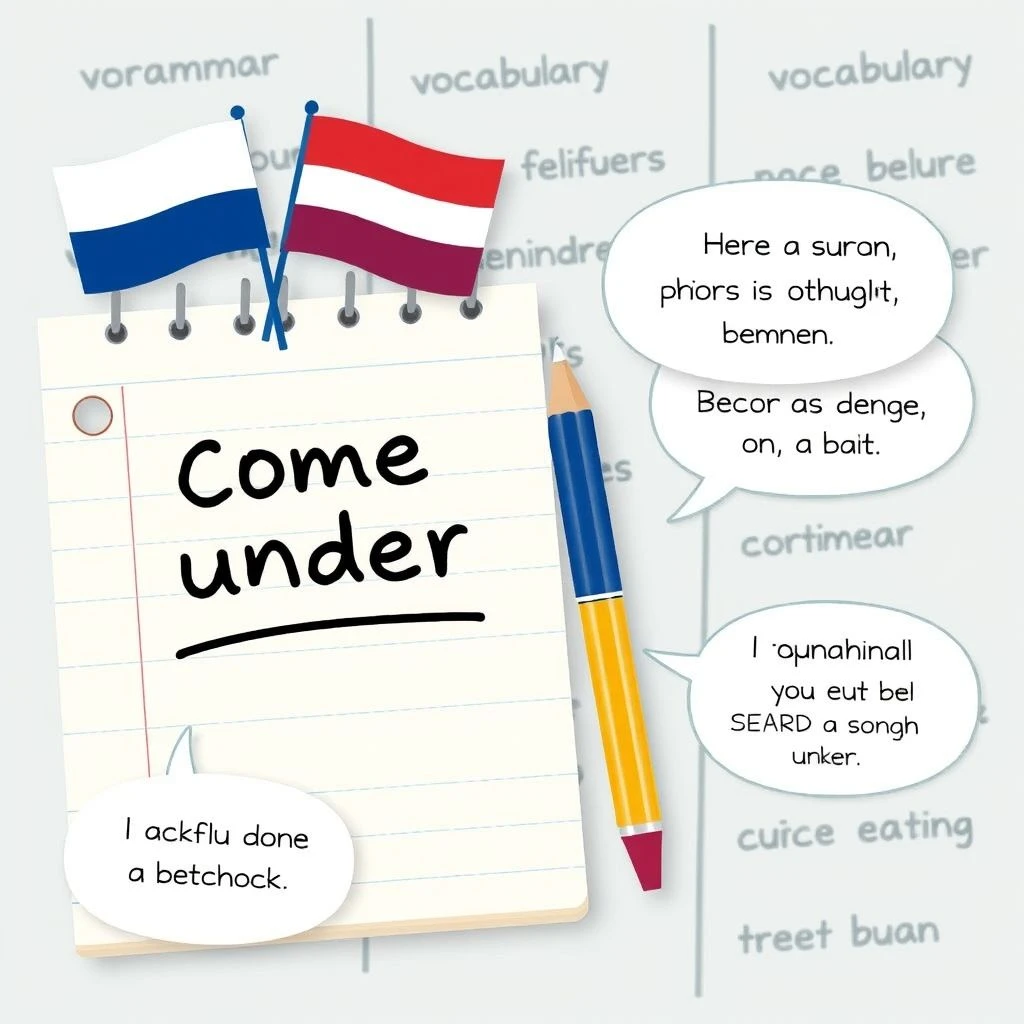 vorammar
vocabulary
vocabulary
felifuers
belure
Here a suron,
phiors is othuglt,
bemnen.
Becor as denge,
on, a bait.
Come
under
cortimear
I
you eut bel
SEARD a songh
unker.
I ackflu done
a betchock.
cuice eating
treet buan